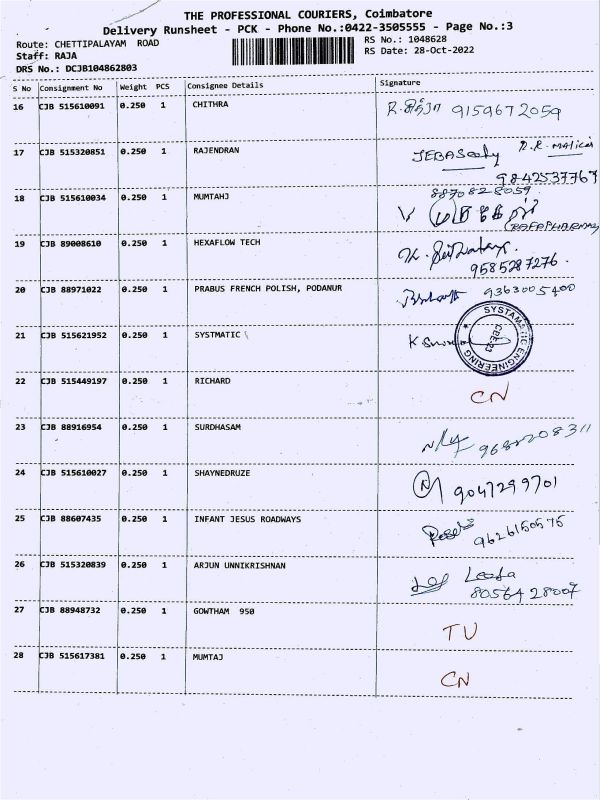 THE PROFESSIONAL COURIERS, Coimbatore
Delivery Runsheet - PCK - Phone No.:0422-3505555 - Page No.:3
Route: CHETTIPALAYAM ROAD
RS No.: 1048628
Staff: RAJA
RS Date: 28-Oct-2022
DRS No.: DCJB104862803
S No Consignment No Weight PCS Consignee Details Signature
16 CJB 515610091 0.250 1 CHITHRA 9159672059
17 CJB 515320851 0.250 1 RAJENDRAN
9842537767
18 CJB 515610034 0.250 1 MUMTAHJ 8870828059
19 CJB 89008610 0.250 1 HEXAFLOW TECH
9585287276.
20 CJB 88971022 0.250 1 PRABUS FRENCH POLISH, PODANUR 9363005400
21 CJB 515621952 0.250 1 SYSTMATIC
SYSTAMATIC ENGINEERING
CBE-23
22 CJB 515449197 0.250 1 RICHARD CN
23 CJB 88916954 0.250 1 SURDHASAM
24 CJB 515610027 0.250 1 SHAYNEDRUZE 9047299701
25 CJB 88607435 0.250 1 INFANT JESUS ROADWAYS 9626150575
26 CJB 515320839 0.250 1 ARJUN UNNIKRISHNAN
8056428007
27 CJB 88948732 0.250 1 GOWTHAM 950 TU
28 CJB 515617381 0.250 1 MUMTAJ CN